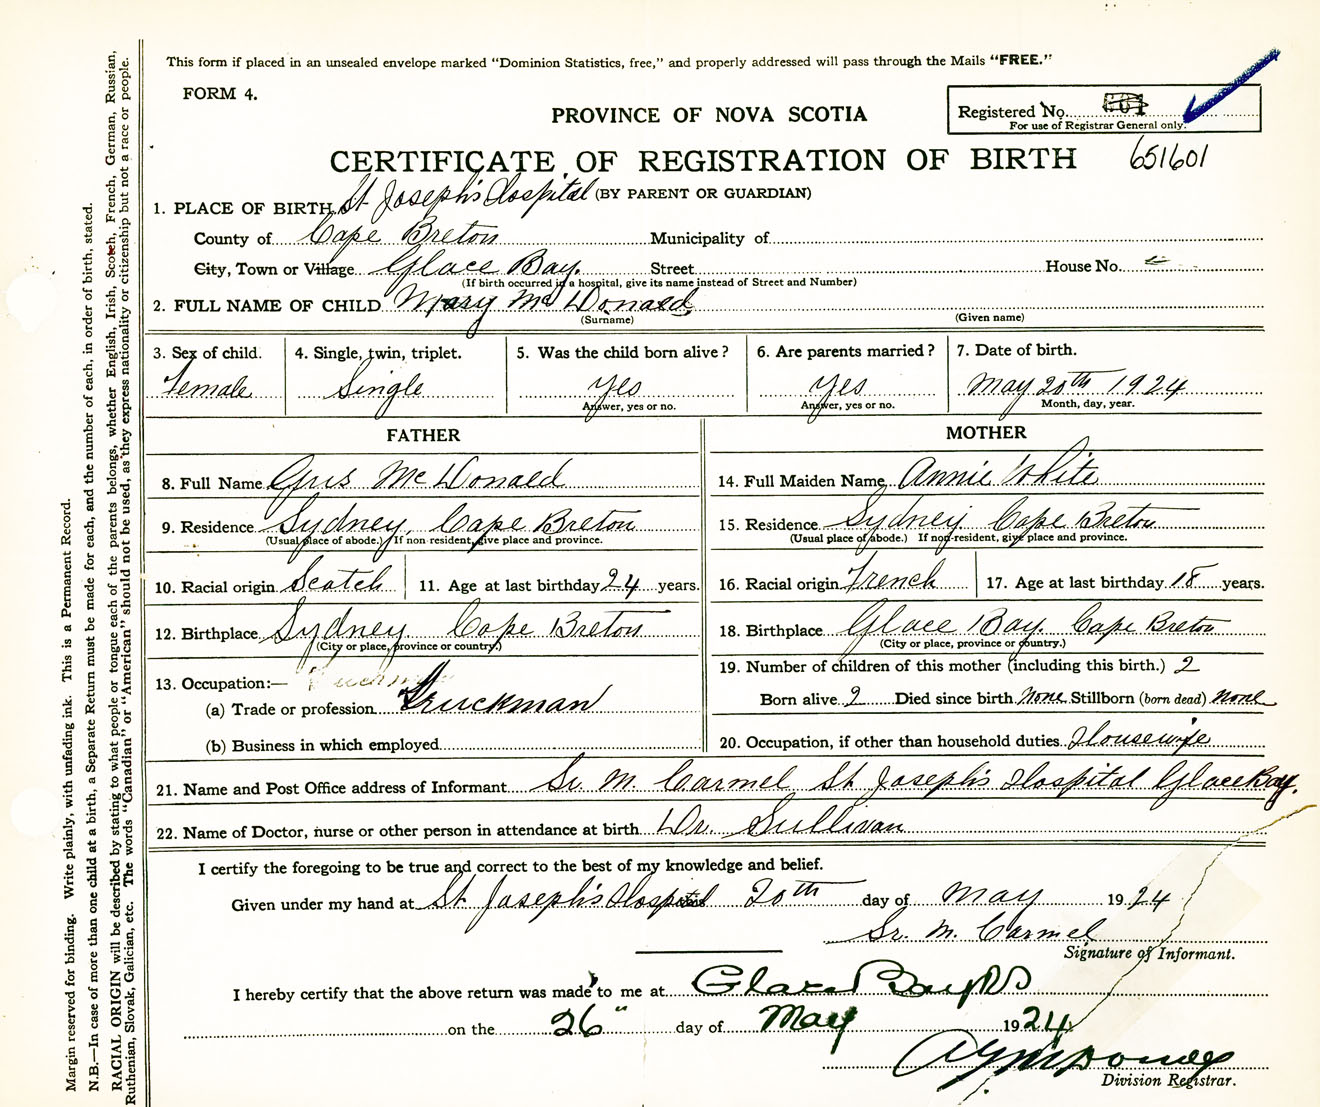 This form if placed in an unsealed envelope marked “Dominion Statistics, free,” and properly addressed will pass through the Mails “FREE.”
FORM 4.
PROVINCE OF NOVA SCOTIA
Registered No. 601
For use of Registrar General only.
CERTIFICATE OF REGISTRATION OF BIRTH 651601
(BY PARENT OR GUARDIAN)
1. PLACE OF BIRTH St Joseph's Hospital
County of Cape Breton Municipality of
City, Town or Village Glace Bay. Street House No.
(If birth occurred in a hospital, give its name instead of Street and Number)
2. FULL NAME OF CHILD Mary McDonald
(Surname) (Given name)
3. Sex of child. 4. Single, twin, triplet. 5. Was the child born alive? 6. Are parents married? 7. Date of birth.
Female Single Yes Yes May 20th 1924
Answer, yes or no. Answer, yes or no. Month, day, year.
FATHER MOTHER
8. Full Name Gus McDonald 14. Full Maiden Name Annie White
9. Residence Sydney, Cape Breton 15. Residence Sydney Cape Breton
(Usual place of abode.) If non-resident, give place and province. (Usual place of abode.) If non-resident, give place and province.
10. Racial origin Scotch 11. Age at last birthday 24 years. 16. Racial origin French 17. Age at last birthday 18 years.
12. Birthplace Sydney Cape Breton 18. Birthplace Glace Bay. Cape Breton
(City or place, province or country.) (City or place, province or country.)
13. Occupation:— Truckman 19. Number of children of this mother (including this birth.) 2
(a) Trade or profession Truckman Born alive 2 Died since birth none Stillborn (born dead) none
(b) Business in which employed 20. Occupation, if other than household duties Housewife
21. Name and Post Office address of Informant Sr. M. Carmel St Joseph's Hospital Glace Bay.
22. Name of Doctor, nurse or other person in attendance at birth Dr. Sullivan
I certify the foregoing to be true and correct to the best of my knowledge and belief.
Given under my hand at St Joseph's Hospital 20th day of May 1924
Sr. M. Carmel
Signature of Informant.
I hereby certify that the above return was made to me at Glace Bay NS
on the 26" day of May 1924
Division Registrar.
Margin reserved for binding. Write plainly, with unfading ink. This is a Permanent Record.
N.B.—In case of more than one child at a birth, a Separate Return must be made for each, and the number of each, in order of birth, stated.
RACIAL ORIGIN will be described by stating to what people or tongue each of the parents belongs, whether English, Irish, Scotch, French, German, Russian,
Ruthenian, Slovak, Galician, etc. The words “Canadian” or “American” should not be used, as they express nationality or citizenship but not a race or people.